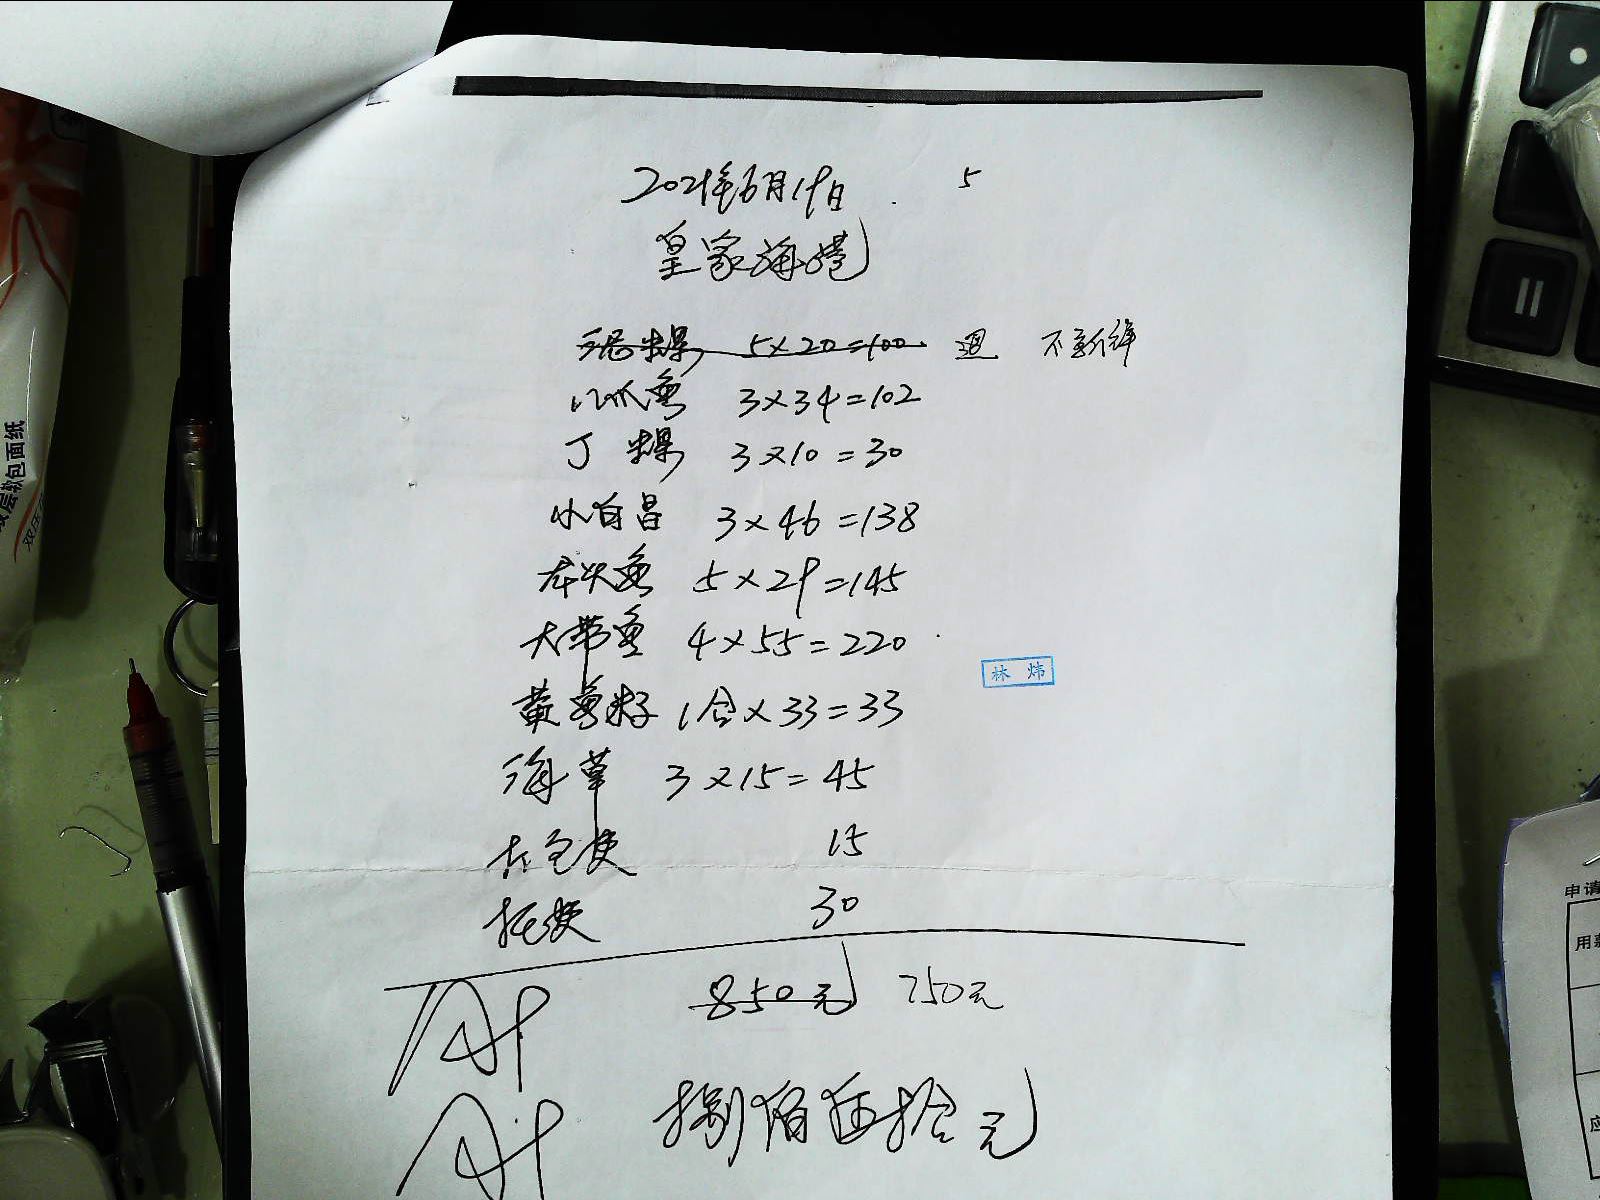 2021年6月19日 5
皇家海港
5×20=100 退 不新鲜
八爪鱼 3×34=102
丁螺 3×10=30
小白昌 3×46=138
5×29=145
大带鱼 4×55=220
林炜
黄鱼籽 1合×33=33
海草 3×15=45
15
30
850元 750元
捌佰伍拾元
双层软包面纸
申请
用
应